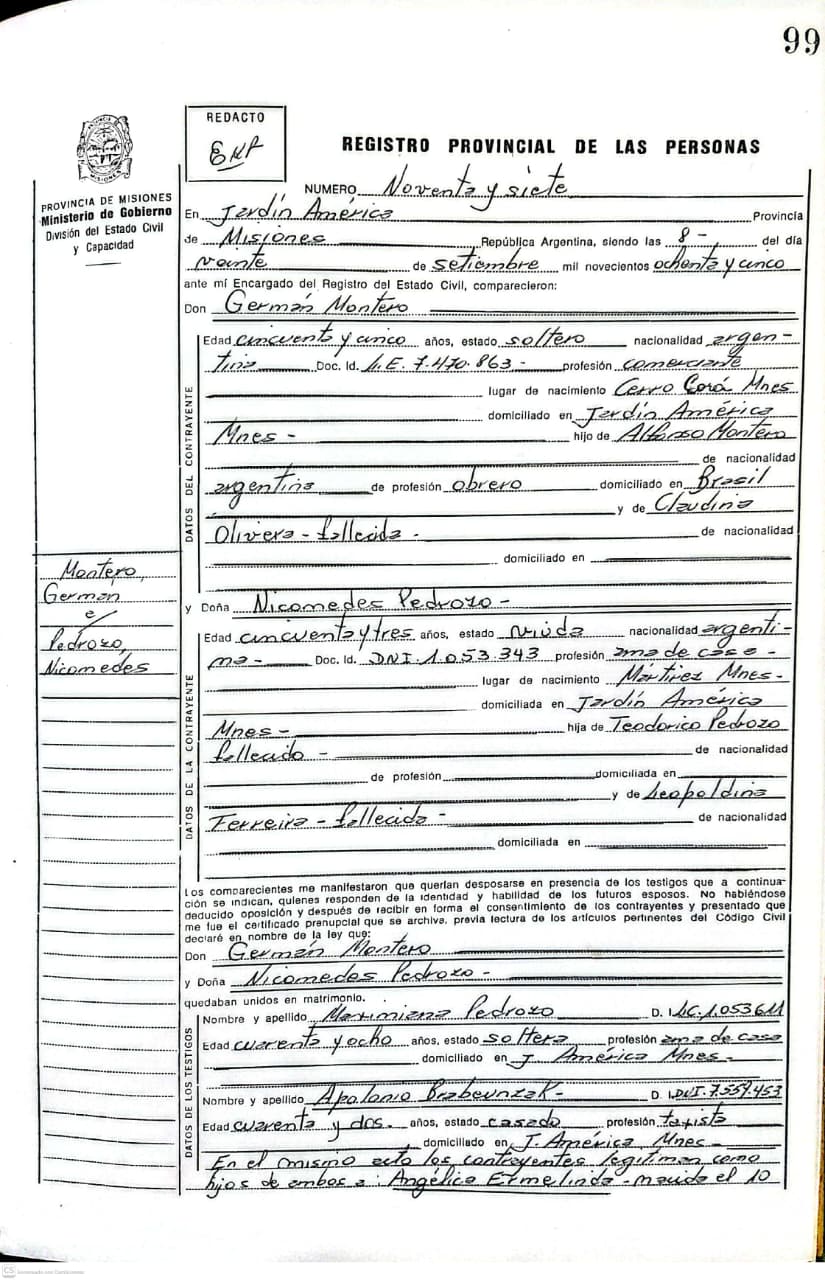 99
REDACTO
REGISTRO PROVINCIAL DE LAS PERSONAS
PROVINCIA DE MISIONES
Ministerio de Gobierno
División del Estado Civil
y Capacidad
NUMERO Noventa y siete
En Jardín América Provincia
de Misiones República Argentina, siendo las 8 - del día
veinte de setiembre mil novecientos ochenta y cinco
ante mí Encargado del Registro del Estado Civil, comparecieron:
Don Germán Montero
DATOS DEL CONTRAYENTE
Edad cincuenta y cinco años, estado soltero nacionalidad argen-
tina Doc. Id. L.E. 7.470.863 - profesión comerciante
lugar de nacimiento Cerro Corá Mnes
domiciliado en Jardín América
Mnes - hijo de Alfonso Montero
de nacionalidad
argentina de profesión obrero domiciliado en Brasil
y de Claudina
Olivera - fallecida - de nacionalidad
domiciliado en
Montero,
Germán
e/
Pedrozo,
Nicomedes
y Doña Nicomedes Pedrozo -
DATOS DE LA CONTRAYENTE
Edad cincuenta y tres años, estado viuda nacionalidad argenti-
na - Doc. Id. DNI. 1.053.343 profesión ama de casa -
lugar de nacimiento Mártirez Mnes -
domiciliada en Jardín América
Mnes - hija de Teodorico Pedrozo
fallecido - de nacionalidad
de profesión domiciliada en
y de Leopoldina
Ferreira - fallecida - de nacionalidad
domiciliada en
Los comparecientes me manifestaron que querían desposarse en presencia de los testigos que a continua-
ción se indican, quienes responden de la identidad y habilidad de los futuros esposos. No habiéndose
deducido oposición y después de recibir en forma el consentimiento de los contrayentes y presentado que
me fue el certificado prenupcial que se archiva, previa lectura de los artículos pertinentes del Código Civil
declaré en nombre de la ley que:
Don Germán Montero
y Doña Nicomedes Pedrozo -
quedaban unidos en matrimonio.
DATOS DE LOS TESTIGOS
Nombre y apellido Maximiana Pedrozo D. I. LC. 1.053611
Edad cuarenta y ocho años, estado soltera profesión ama de casa
domiciliado en J. América Mnes -
Nombre y apellido Apolonio D. I. DNI. 7.559.453
Edad cuarenta y dos. años, estado casado profesión taxista
domiciliado en J. América Mnes -
En el mismo acto los contrayentes legitiman como
hijos de ambos a: Angélica Ermelinda - nacida el 10
CS Escaneado con CamScanner